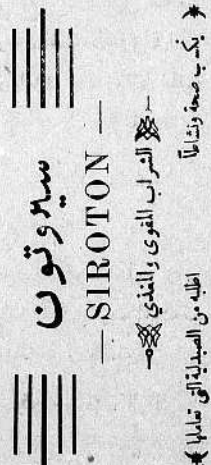 سيروتون
— SIROTON —
الشراب المقوى والمغذي
يكسب صحة ونشاطاً
اطلبه من الصيدلية التي تعاملها